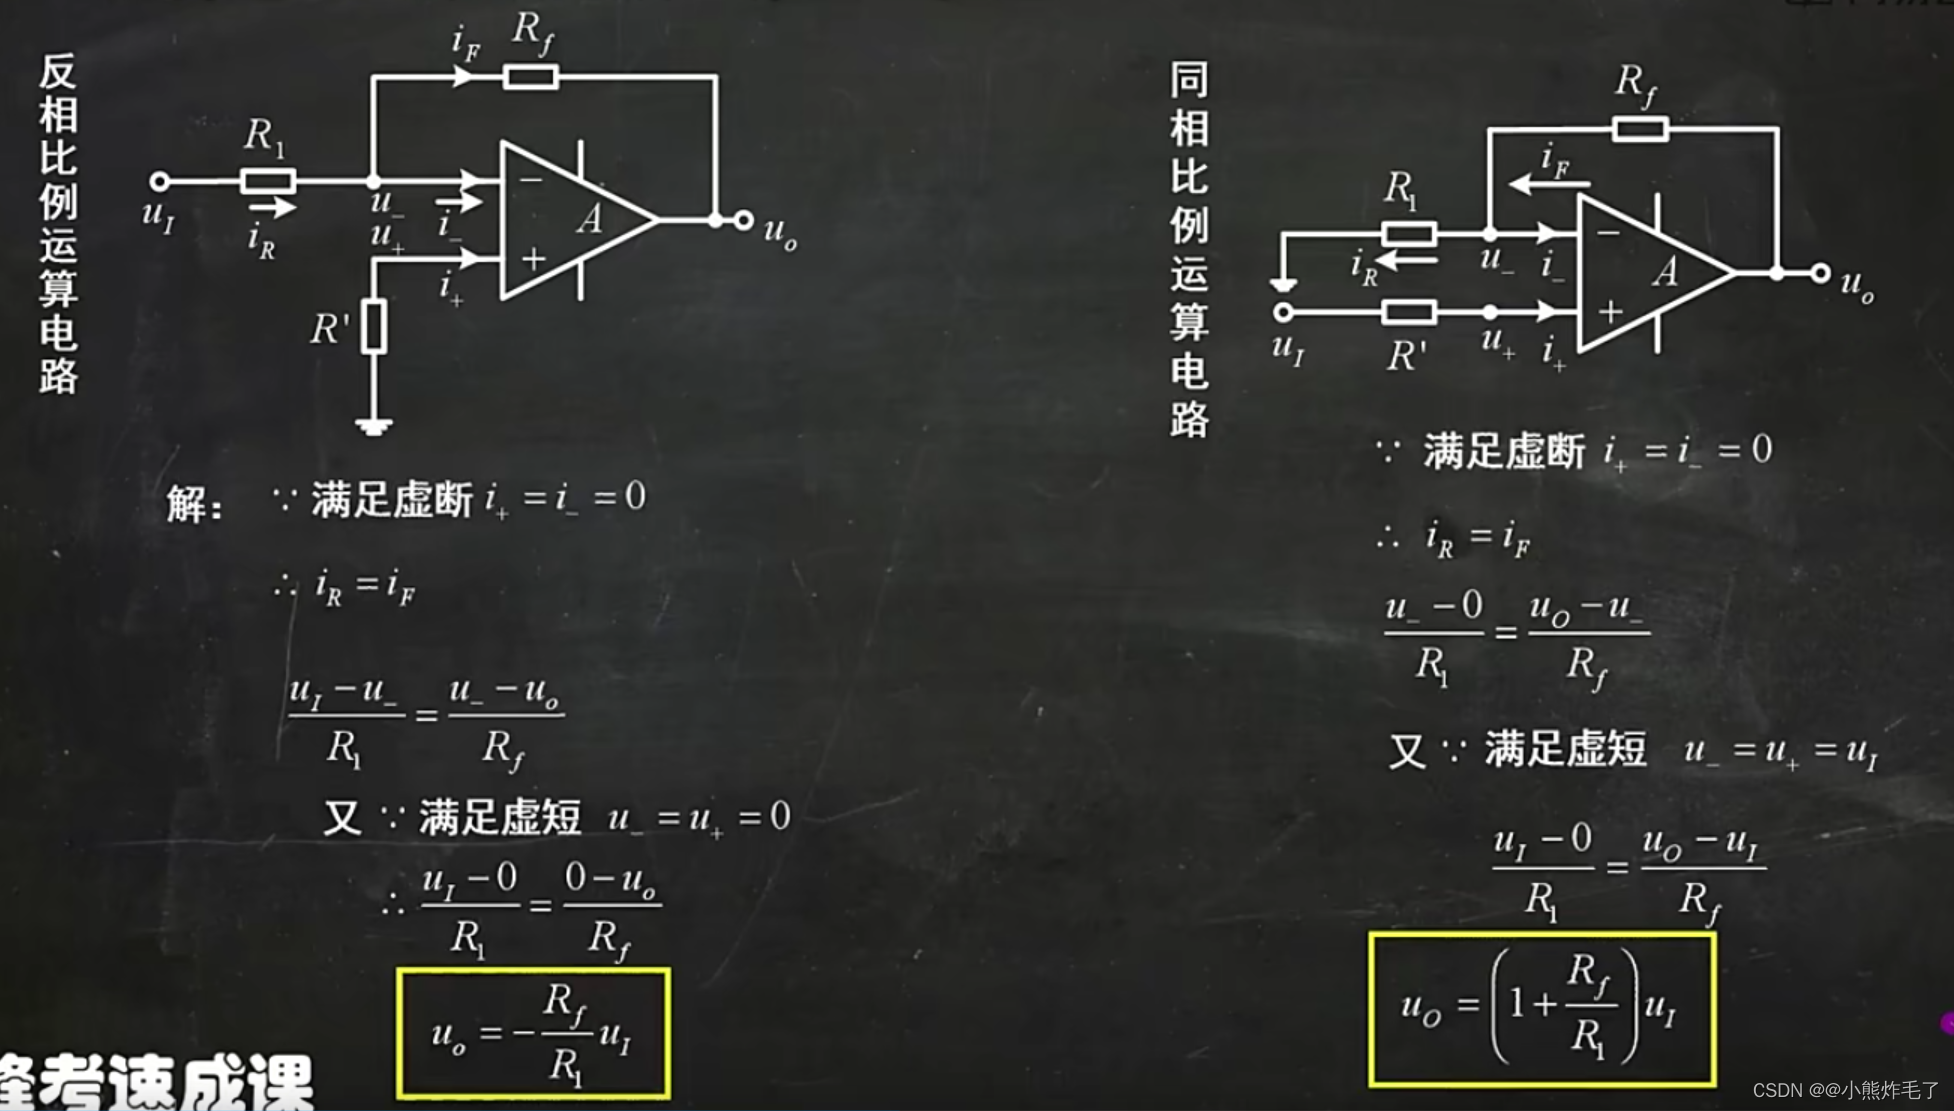 反相比例运算电路
i_F R_f
R_1
u_I i_R u_- i_- − A u_o
u_+ i_+ +
R'
解： ∵ 满足虚断 i_+ = i_- = 0
∴ i_R = i_F
(u_I − u_-)/R_1 = (u_- − u_o)/R_f
又 ∵ 满足虚短 u_- = u_+ = 0
∴ (u_I − 0)/R_1 = (0 − u_o)/R_f
u_o = −(R_f/R_1) u_I
同相比例运算电路
R_f
i_F
R_1
i_R u_- i_- − A u_o
u_I R' u_+ i_+ +
∵ 满足虚断 i_+ = i_- = 0
∴ i_R = i_F
(u_- − 0)/R_1 = (u_O − u_-)/R_f
又 ∵ 满足虚短 u_- = u_+ = u_I
(u_I − 0)/R_1 = (u_O − u_I)/R_f
u_O = (1 + R_f/R_1) u_I
考速成课
CSDN @@小熊炸毛了